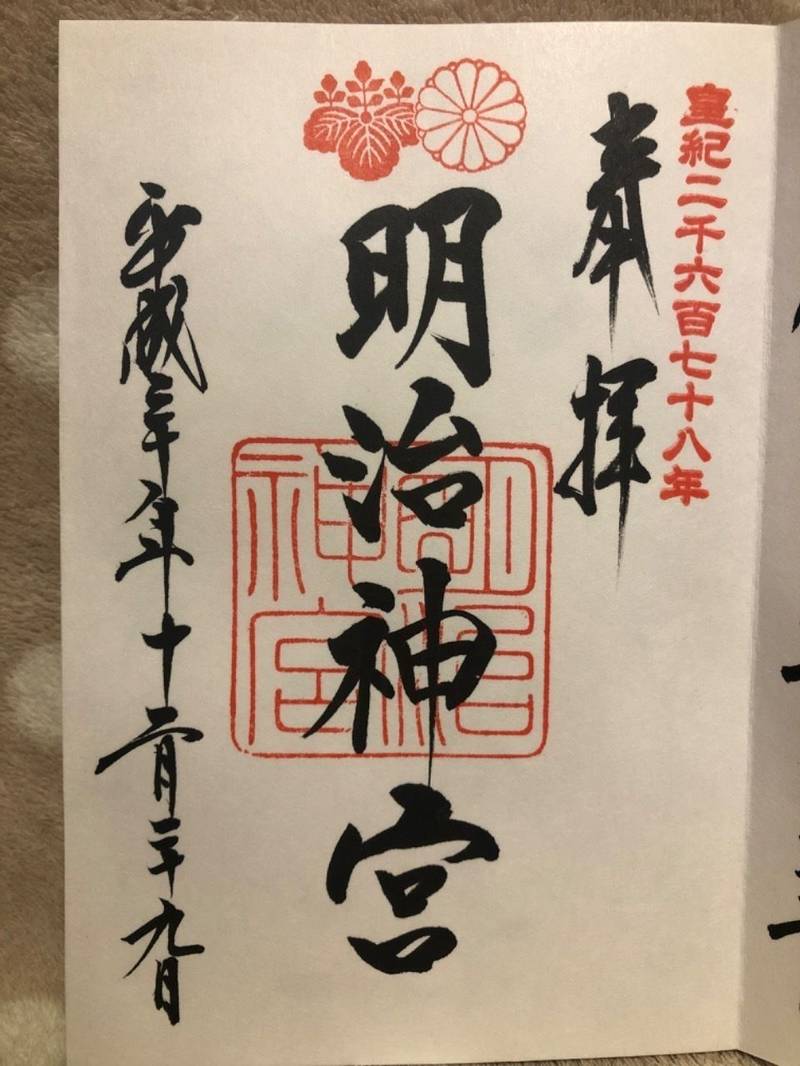 皇紀二千六百七十八年
奉拝
明治神宮
明治
神宮
平成三十年十二月二十九日